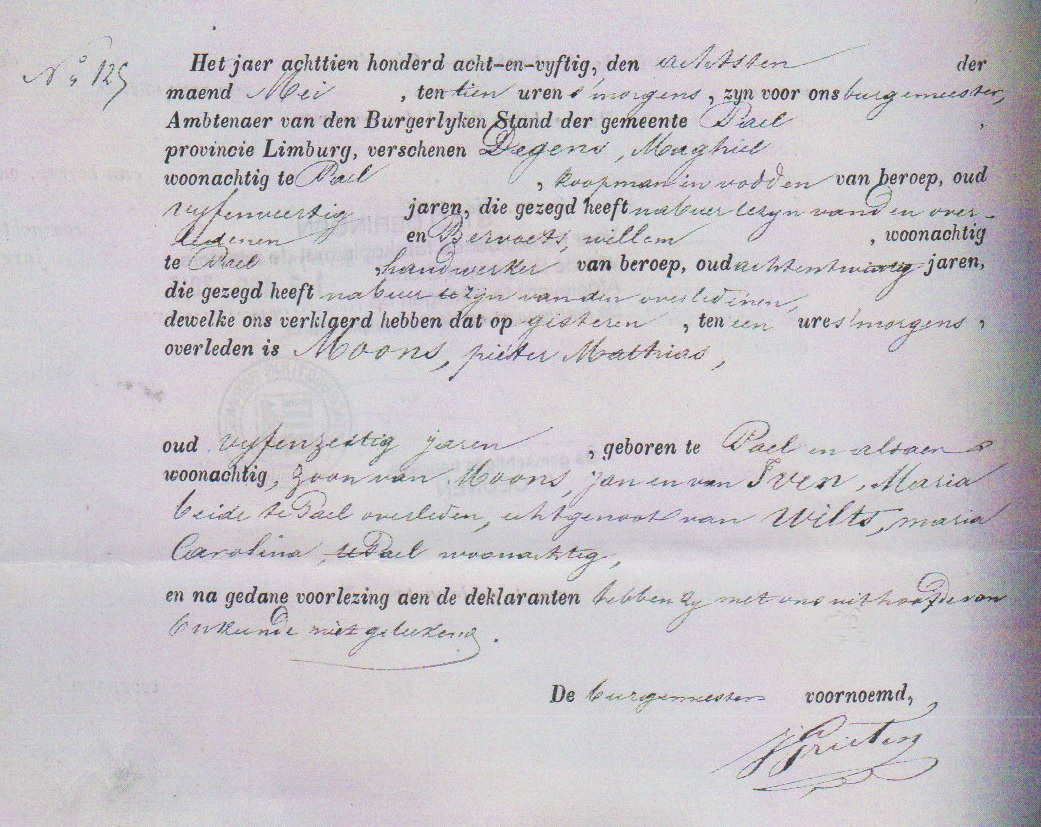 N° 125
Het jaer achttien honderd acht-en-vyftig, den achtsten der
maend Mei , ten tien uren s'morgens, zyn voor ons burgemeester,
Ambtenaer van den Burgerlyken Stand der gemeente Pael ,
provincie Limburg, verschenen Degens, Maghiel
woonachtig te Pael , koopman in vodden van beroep, oud
vyfenveertig jaren, die gezegd heeft nabuer te zyn van den over-
ledenen en Bervoets, willem , woonachtig
te Pael , handwerker van beroep, oud achtentwintig jaren,
die gezegd heeft nabuer te zyn van den overledenen,
dewelke ons verklaerd hebben dat op gisteren , ten een ure s'morgens ,
overleden is Moons, pieter Mathias,
oud vyfenzestig jaren , geboren te Pael en aldaer
woonachtig, zoon van Moons, Jan en van Iven, Maria
beide te Pael overleden, echtgenoot van Wilts, maria
Carolina, te Pael woonachtig,
en na gedane voorlezing aen de deklaranten hebben zy met ons uit hoofde van
onkunde niet geteekend.
De burgemeester voornoemd,